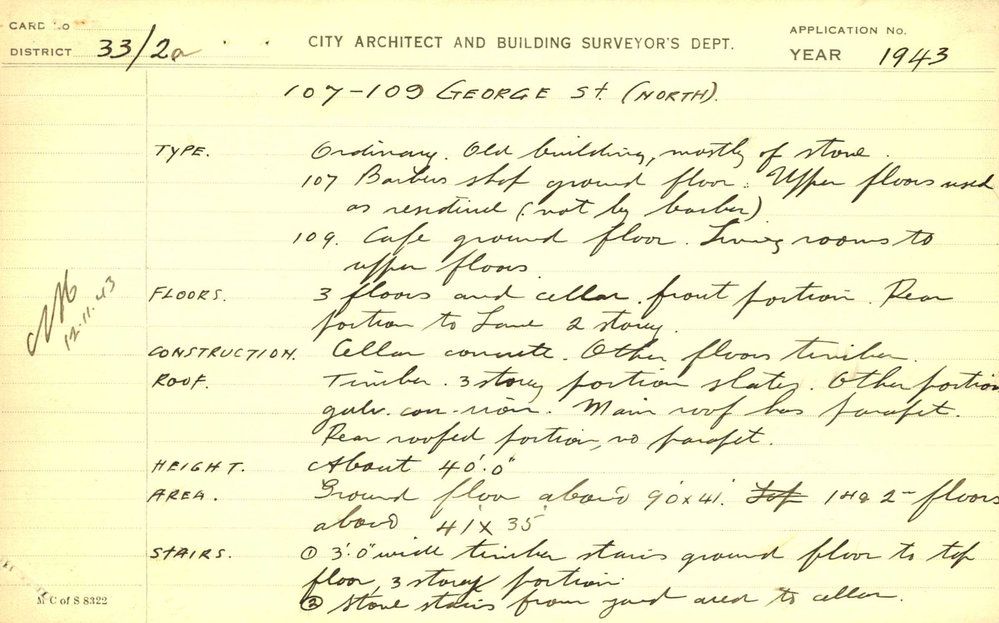 CARD No
DISTRICT 33/2a
CITY ARCHITECT AND BUILDING SURVEYOR'S DEPT.
APPLICATION No.
YEAR 1943
107-109 GEORGE St. (NORTH).
TYPE. Ordinary. Old building, mostly of stone.
107 Barbers shop ground floor. Upper floors used
as residential (not by barber)
109. Cafe ground floor. Living rooms to
upper floors.
12.11.43
FLOORS. 3 floors and cellar front portion. Rear
portion to Lane 2 storey.
CONSTRUCTION. Cellar concrete. Other floors timber.
ROOF. Timber. 3 storey portion slates. Other portion
galv. corr-iron. Main roof has parapet.
Rear roofed portion, no parapet.
HEIGHT. About 40'.0"
AREA. Ground floor about 90'x41'. Top 1st & 2nd floors
about 41'x35'
STAIRS. ① 3'.0" wide timber stairs ground floor to top
floor, 3 storey portion.
② Stone stairs from yard area to cellar.
M C of S 8322